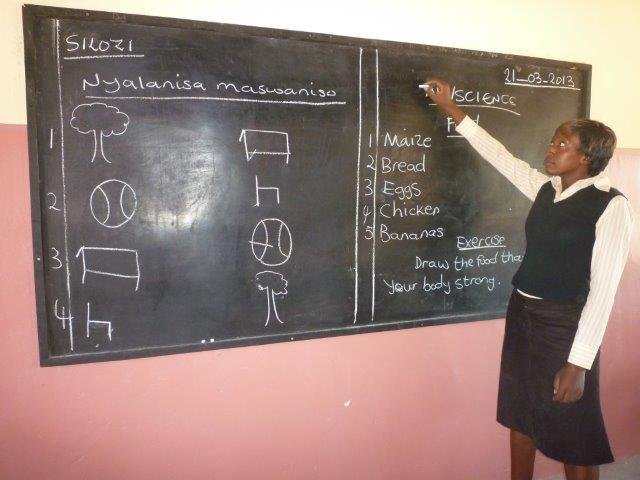 SILOZI
Nyalanisa maswaniso
1
2
3
4
21-03-2013
/SCIENCE
1 Maize
2 Bread
3 Eggs
4 Chicken
5 Bananas
Exercise
Draw the food
Your body strong.